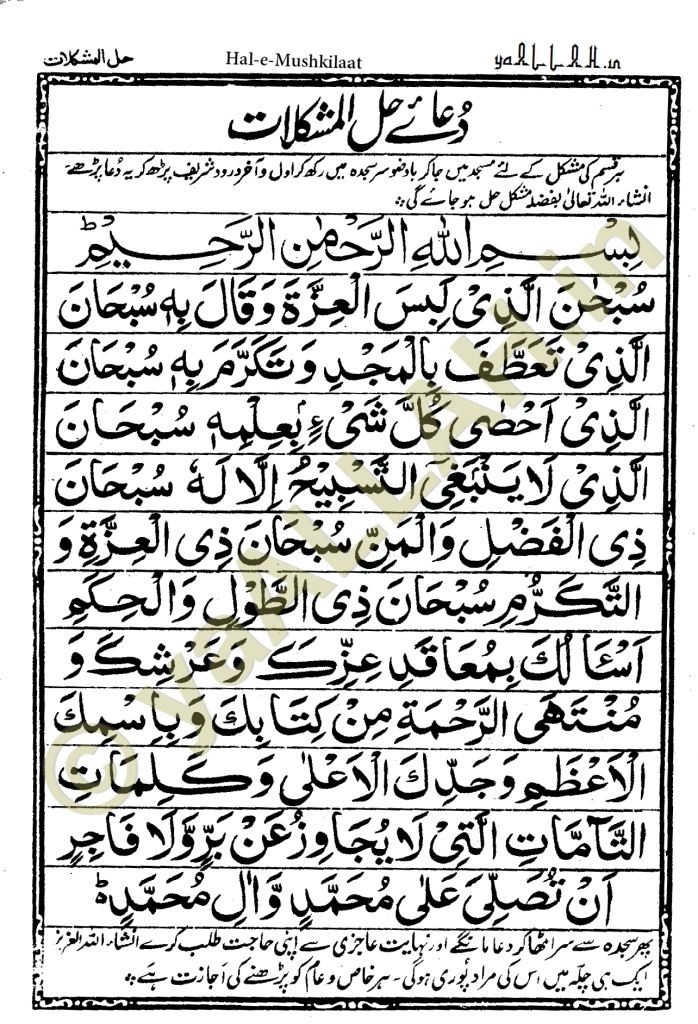 حل المشکلات Hal-e-Mushkilaat yaALLAH.in
دُعائے حل المشکلات
ہر قسم کی مشکل کے لئے مسجد میں جا کر باوضو سر سجدہ میں رکھ کر اول و آخر درود شریف پڑھ کر یہ دُعا پڑھے۔
انشاء اللہ تعالیٰ بفضلہ مشکل حل ہو جائے گی
بِسْمِ اللهِ الرَّحْمٰنِ الرَّحِيْمِ ط
سُبْحٰنَ الَّذِیْ لَبِسَ الْعِزَّةَ وَقَالَ بِهٖ سُبْحَانَ
الَّذِیْ تَعَطَّفَ بِالْمَجْدِ وَتَكَرَّمَ بِهٖ سُبْحَانَ
الَّذِیْ اَحْصٰی كُلَّ شَیْءٍ بِعِلْمِهٖ سُبْحَانَ
الَّذِیْ لَا یَنْبَغِی التَّسْبِیْحُ اِلَّا لَهٗ سُبْحَانَ
ذِی الْفَضْلِ وَالْمَنِّ سُبْحَانَ ذِی الْعِزَّةِ وَ
التَّكَرُّمِ سُبْحَانَ ذِی الطَّوْلِ وَالْحِكَمِ
اَسْئَالُكَ بِمُعَاقَدِ عِزِّكَ وَعَرْشِكَ وَ
مُنْتَهَی الرَّحْمَةِ مِنْ كِتَابِكَ وَبِاسْمِكَ
الْاَعْظَمِ وَجَدِّكَ الْاَعْلٰی وَكَلِمَاتِ
التَّآمَّاتِ الَّتِیْ لَا یُجَاوِزُعَنْ بَرٍّ وَّلَا فَاجِرٍ
اَنْ تُصَلِّیَ عَلٰی مُحَمَّدٍ وَّاٰلِ مُحَمَّدٍ ط
پھر سجدہ سے سر اٹھا کر دعا مانگے اور نہایت عاجزی سے اپنی حاجت طلب کرے انشاء اللہ العزیز
ایک ہی چلّہ میں اس کی مراد پوری ہوگی۔ ہر خاص و عام کو پڑھنے کی اجازت ہے
© yaALLAH.in